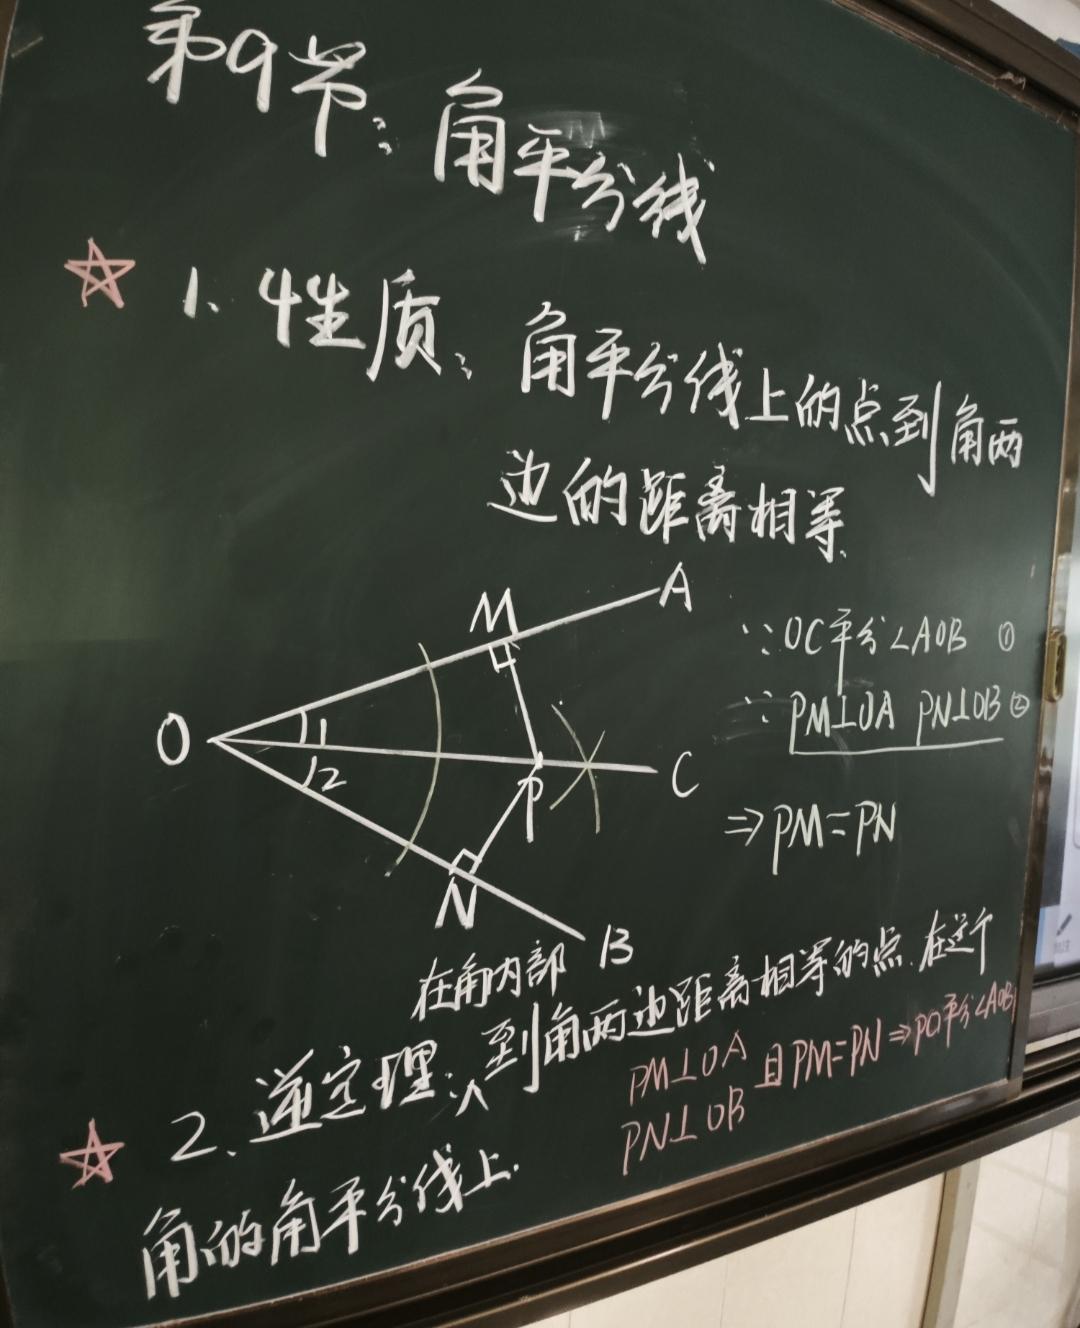 第9节：角平分线
1. 性质：角平分线上的点到角两
边的距离相等.
M
A
O
1
2
P
C
N
B
∵OC平分∠AOB ①
∵PM⊥OA PN⊥OB ②
⇒PM=PN
在角内部
2. 逆定理：∧到角两边距离相等的点.在这个
角的角平分线上.
PM⊥OA
PN⊥OB
且PM=PN⇒PO平分∠AOB